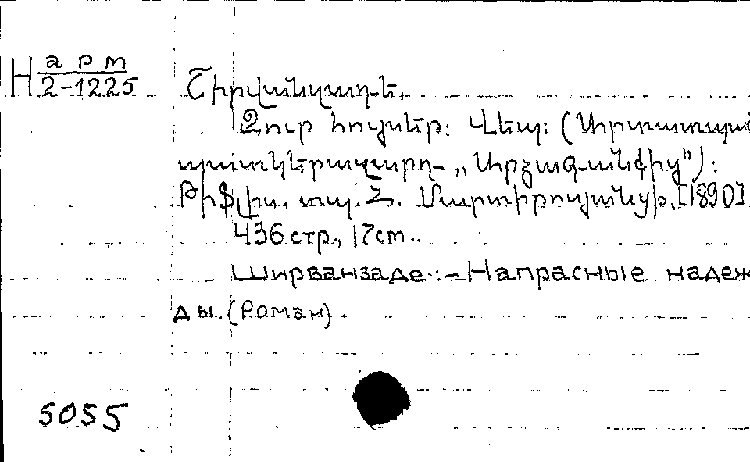 Н арт
2-1225
Շիրվանզադե.
Զուր հույսեր: Վեպ: (Արտատպած
պատկերազարդ „Արձագանքից"):
Թիֆլիս, տպ. Հ. Մարտիրոսյանցի, [1890].
436 стр., 17 cm.
Ширванзаде. - Напрасные надеж
ды. (Роман).
5055